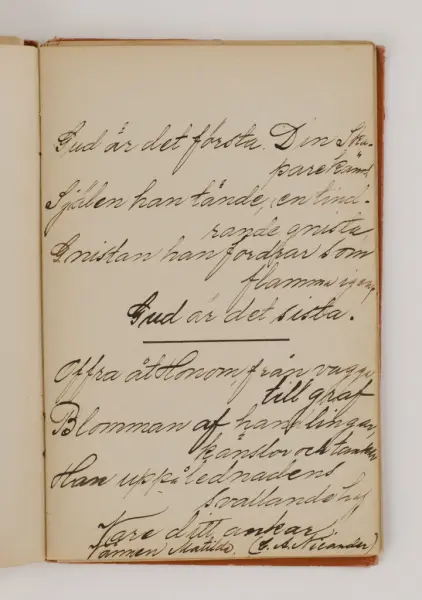 Gud är det första. Din Ska-
parekänn,
Själen han tände, en tind-
rande gnista,
Gnistan han fordrar som
flamma igen,
Gud är det sista.
Offra åt Honom, från vagga
till graf
Blomman af handlingar,
känslor och tankar
Han uppå lefnadens
svallande haf
Vare ditt ankar
Vännen Matilda. (C. A. Nicander)